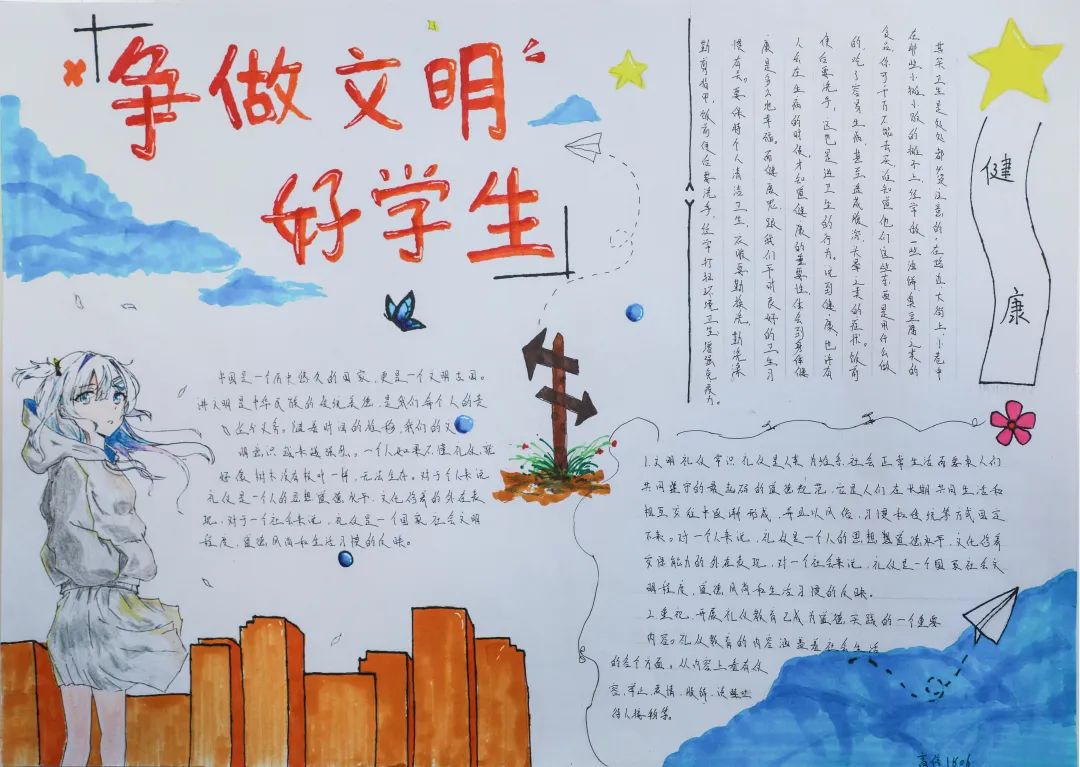 争做文明
好学生
健康
其实卫生是处处都必须注意的,在路边、大街上、小巷中
在那些小摊小贩的摊子上,经常做一些油饼、臭豆腐之类的
食品,你可千万不能去买,谁知道他们这些东西是用什么做
的,吃了容易生病,甚至造成腹泻、头晕之类的症状。饭前
便后要洗手,这也是讲卫生的行为。说到健康,也许有
人会在生病的时候,才知道健康的重要性,体会到身体健
康是多么地幸福。而健康也跟我们平时良好的卫生习
惯有关。要保持个人清洁卫生,衣服要勤换洗,勤洗澡
勤剪指甲,饭前便后要洗手,经常打扫环境卫生,增强免疫力。
中国是一个历史悠久的国家,更是一个文明古国。
讲文明是中华民族的传统美德,是我们每个人的责
任义务。随着时间的推移,我们的文
明意识越来越强烈。一个人如果不懂礼仪,就
好像树木没有枝叶一样,无法生存。对于个人来说
礼仪是一个人的思想道德水平、文化修养的外在表
现,对于一个社会来说,礼仪是一个国家社会文明
程度,道德风尚和生活习惯的反映。
1.文明礼仪常识,礼仪是人类为维系社会正常生活而要求人们
共同遵守的最起码的道德规范,它是人们在长期共同生活和
相互交往中逐渐形成,并且以风俗、习惯和传统等方式固定
下来。对一个人来说,礼仪是一个人的思想道德水平、文化修养
交际能力的外在表现,对一个社会来说,礼仪是一个国家社会文
明程度,道德风尚和生活习惯的反映。
2.重视、开展礼仪教育已成为道德实践的一个重要
内容。礼仪教育的内容涵盖着社会生活
的各个方面。从内容上看有仪
容、举止、表情、服饰、谈吐
待人接物等。